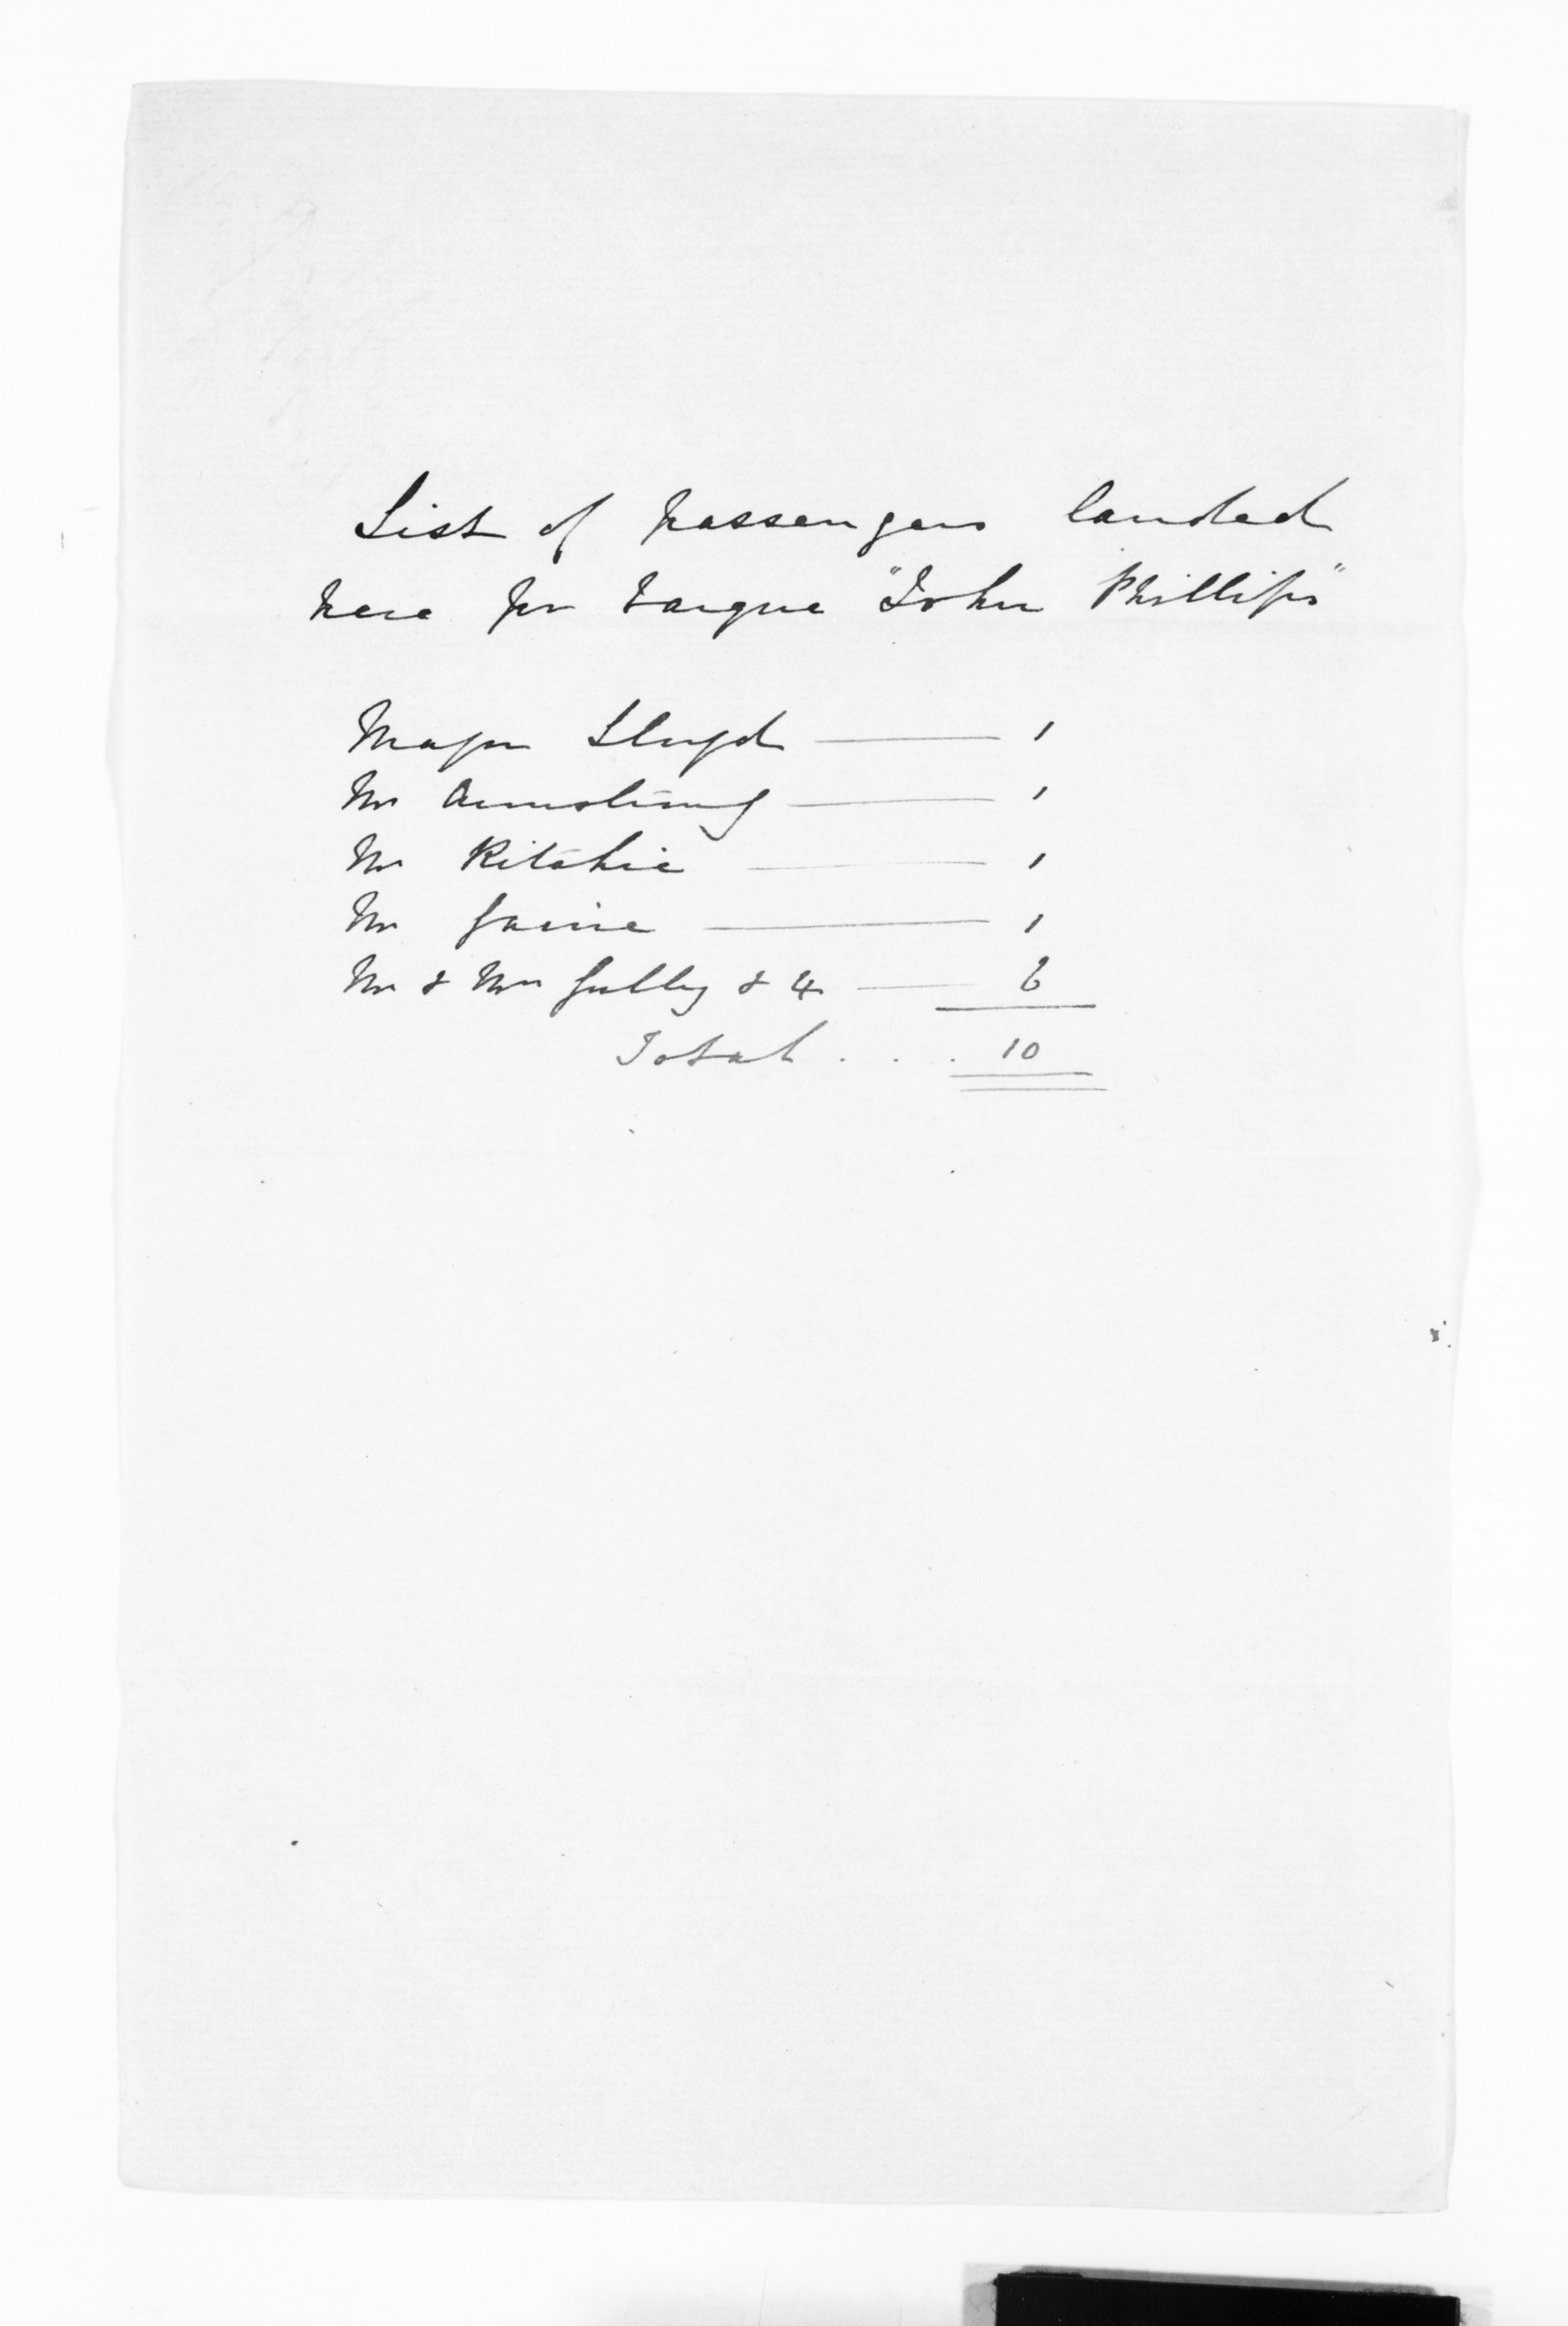 List of passengers landed
here pr barque "John Phillips"
Major Lloyd — 1
Mr Armstrong — 1
Mr Ritchie — 1
Mr — 1
Mr & Mrs Gully & 4 — 6
Total . . . 10